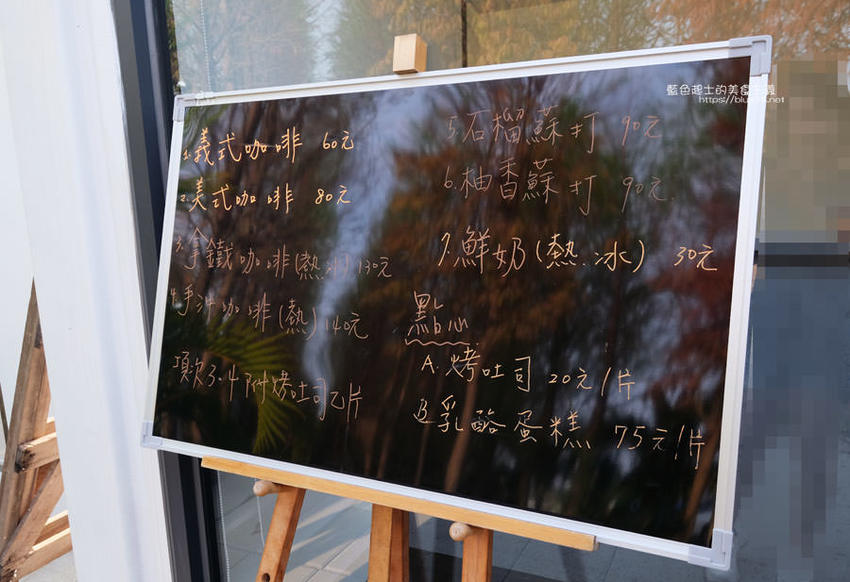 1.義式咖啡 60元
2.美式咖啡 80元
3.拿鐵咖啡(熱.冰) 130元
4.手沖咖啡(熱) 140元
項次3.4附烤吐司乙片
5.石榴蘇打 90元
6.柚香蘇打 90元.
7.鮮奶(熱.冰) 30元
點心
A.烤吐司 20元/片
B.乳酪蛋糕 75元/片
藍色起士的美食主義